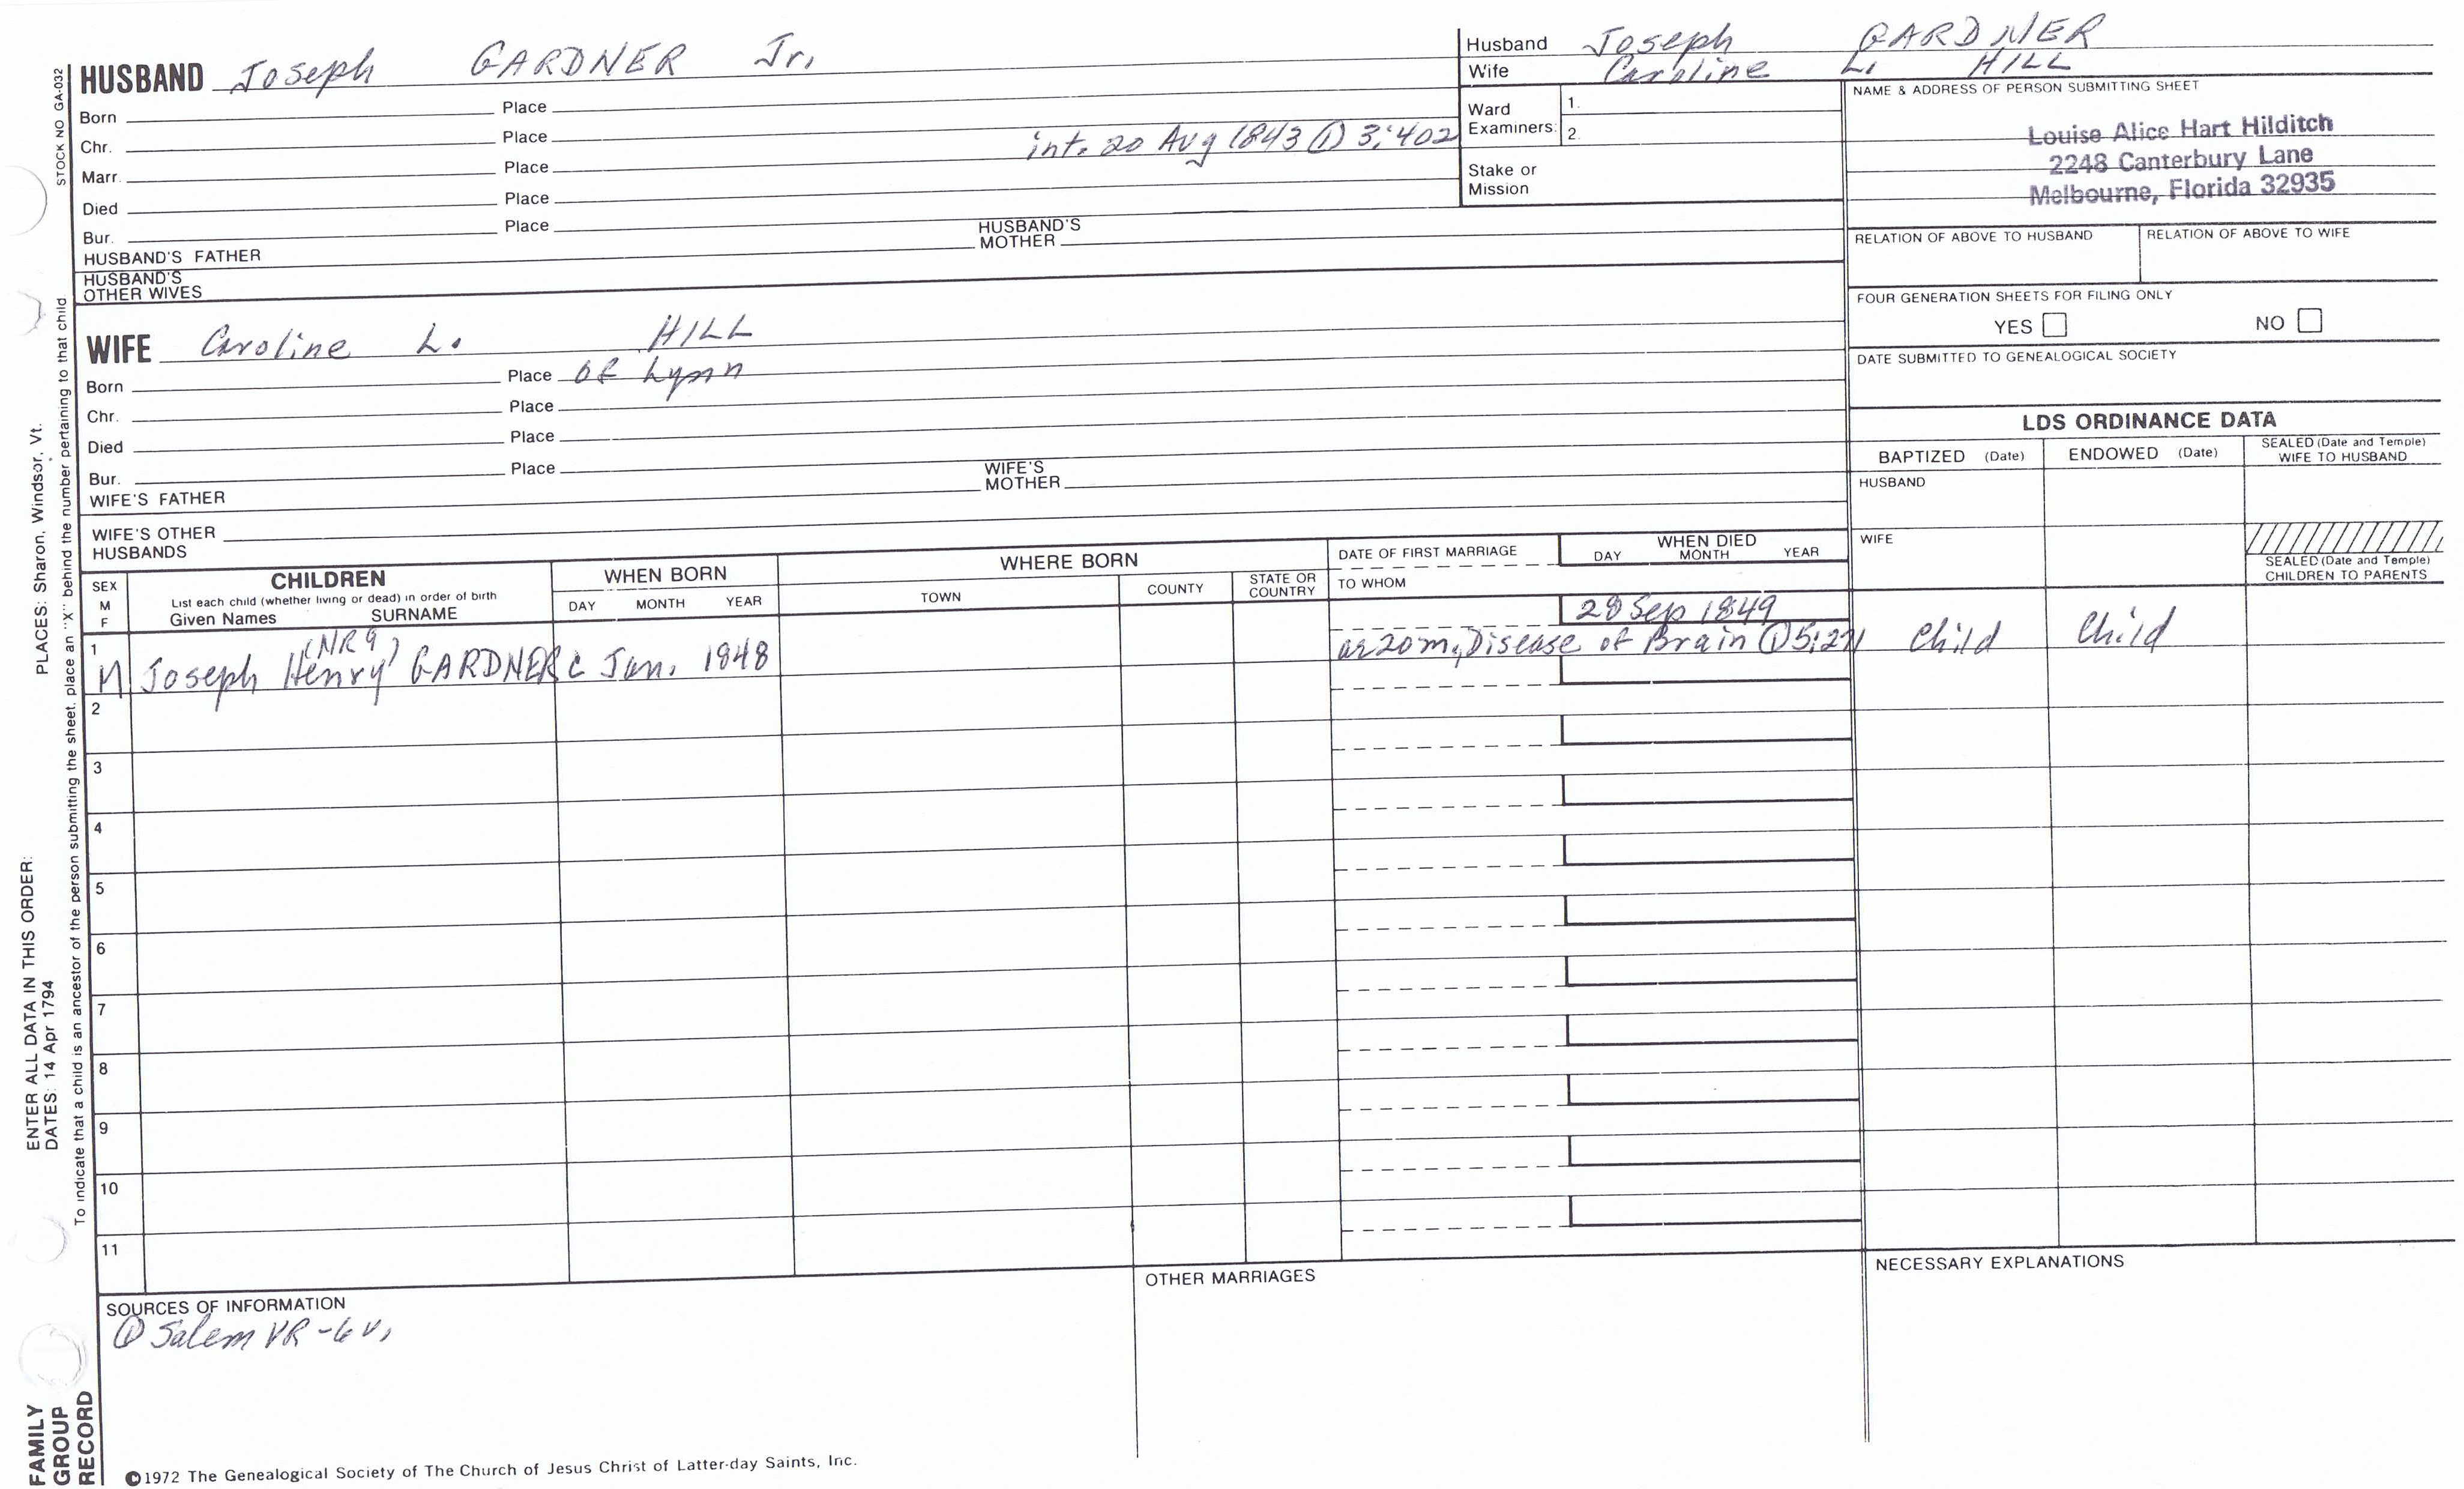 STOCK NO GA-032
PLACES: Sharon, Windsor, Vt.
ENTER ALL DATA IN THIS ORDER:
DATES: 14 Apr 1794
To indicate that a child is an ancestor of the person submitting the sheet, place an "X" behind the number pertaining to that child
FAMILY
GROUP
RECORD
HUSBAND Joseph GARDNER Jr.
Born Place
Chr. Place
Marr. Place int. 20 Aug 1843 ① 3:402
Died Place
Bur. Place
HUSBAND'S FATHER HUSBAND'S MOTHER
HUSBAND'S
OTHER WIVES
WIFE Caroline L. HILL
Born Place of Lynn
Chr. Place
Died Place
Bur. Place
WIFE'S FATHER WIFE'S MOTHER
WIFE'S OTHER
HUSBANDS
Husband Joseph GARDNER
Wife Caroline L. HILL
Ward
Examiners: 1.
2.
Stake or
Mission
NAME & ADDRESS OF PERSON SUBMITTING SHEET
Louise Alice Hart Hilditch
2248 Canterbury Lane
Melbourne, Florida 32935
RELATION OF ABOVE TO HUSBAND RELATION OF ABOVE TO WIFE
FOUR GENERATION SHEETS FOR FILING ONLY
YES NO
DATE SUBMITTED TO GENEALOGICAL SOCIETY
LDS ORDINANCE DATA
BAPTIZED (Date) ENDOWED (Date) SEALED (Date and Temple)
WIFE TO HUSBAND
HUSBAND
WIFE
SEALED (Date and Temple)
CHILDREN TO PARENTS
SEX
M
F
CHILDREN
List each child (whether living or dead) in order of birth
Given Names SURNAME
WHEN BORN
DAY MONTH YEAR
WHERE BORN
TOWN COUNTY STATE OR
COUNTRY
DATE OF FIRST MARRIAGE
TO WHOM
WHEN DIED
DAY MONTH YEAR
28 Sep 1849
(NR 9)
1 M Joseph Henry GARDNER c Jan. 1848 ae 20m, Disease of Brain ① 5:271 Child Child
2
3
4
5
6
7
8
9
10
11
SOURCES OF INFORMATION
① Salem VR - 6 v,
OTHER MARRIAGES
NECESSARY EXPLANATIONS
©1972 The Genealogical Society of The Church of Jesus Christ of Latter-day Saints, Inc.